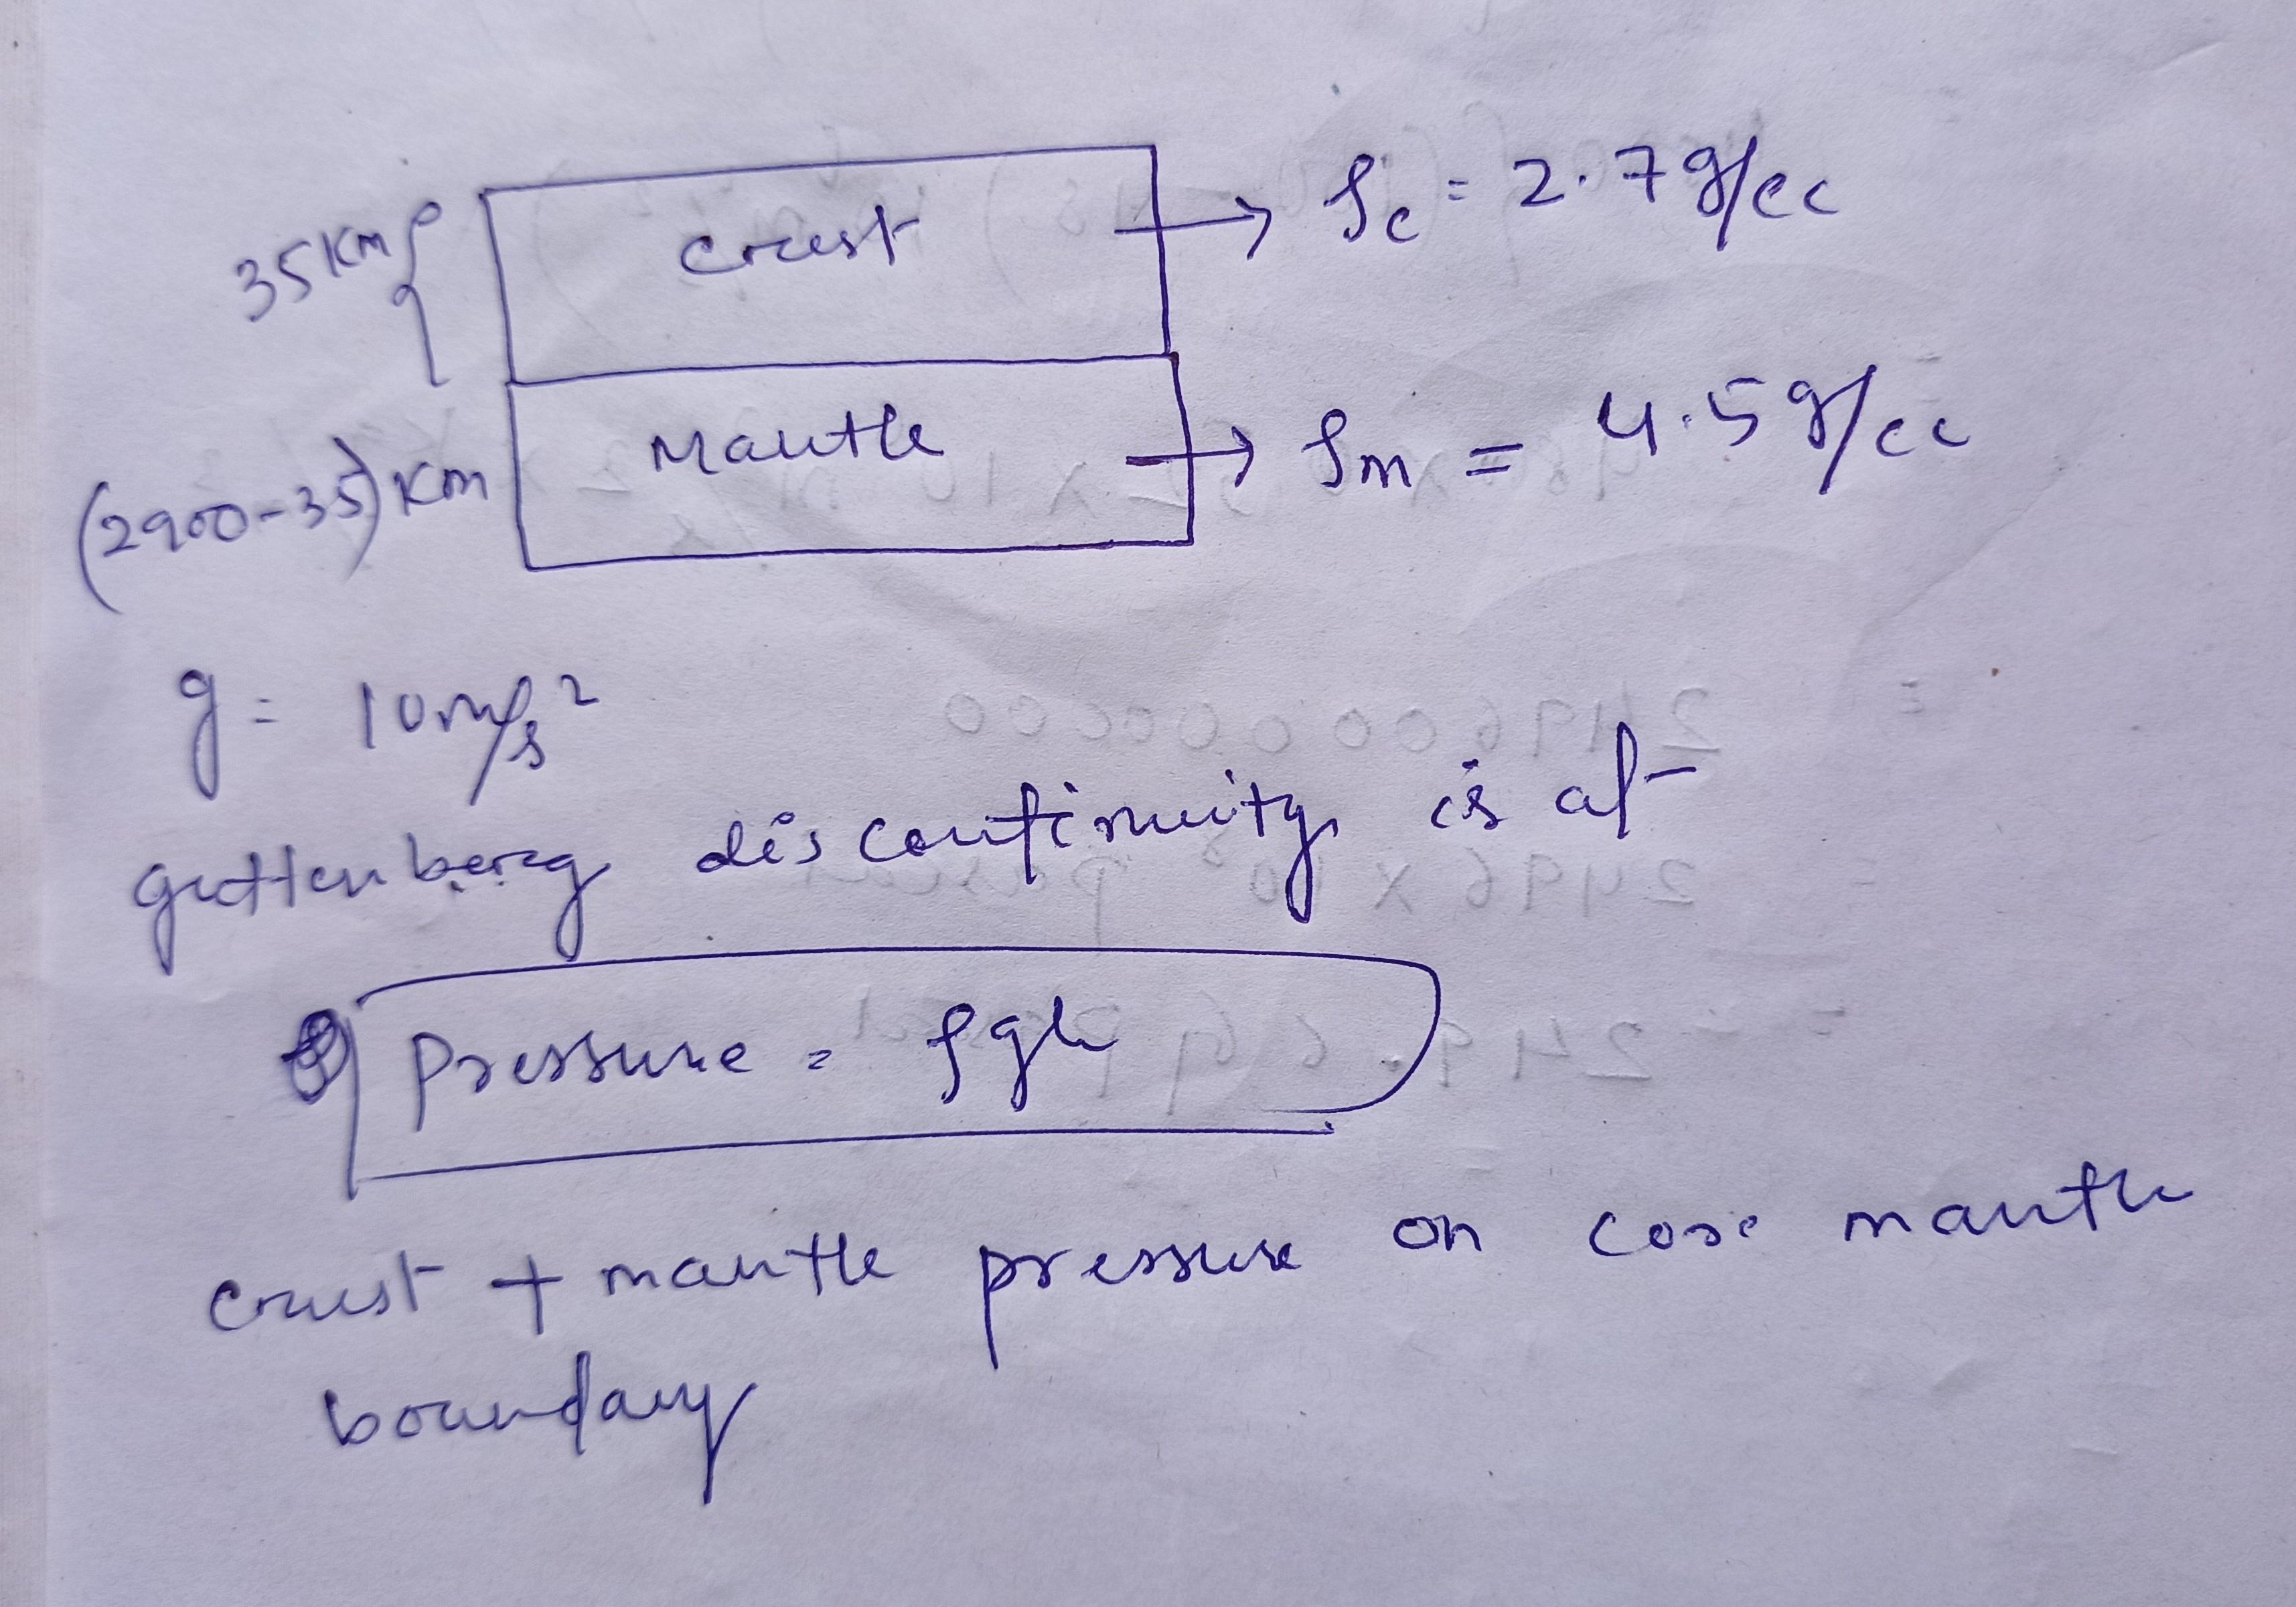 35 Km
Crust
→ ρc = 2.7 g/cc
(2900-35) Km
Mantle
→ ρm = 4.5 g/cc
g = 10 m/s²
guttenberg discontinuity is at
Pressure = ρgh
Crust + mantle pressure on core mantle
boundary